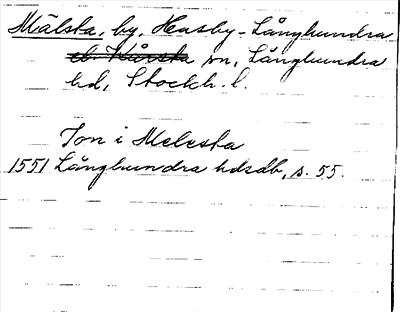 Mälsta, by, Husby-Långhundra
el. Kårsta sn, Långhundra
hd, Stockh. l.
Jon i Melesta
1551 Långhundra hdsdb, s. 55.